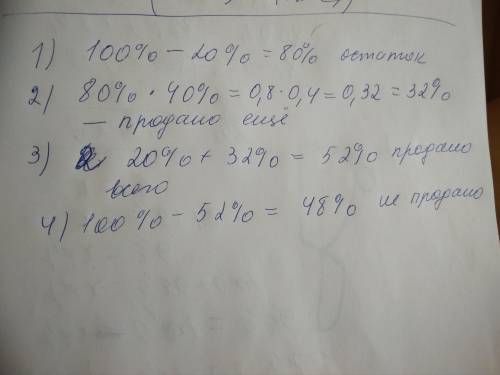 1) 100% - 20% = 80% остаток
2) 80% · 40% = 0,8 · 0,4 = 0,32 = 32%
— продано ещё
3) 20% + 32% = 52% продано
всего
4) 100% - 52% = 48% не продано